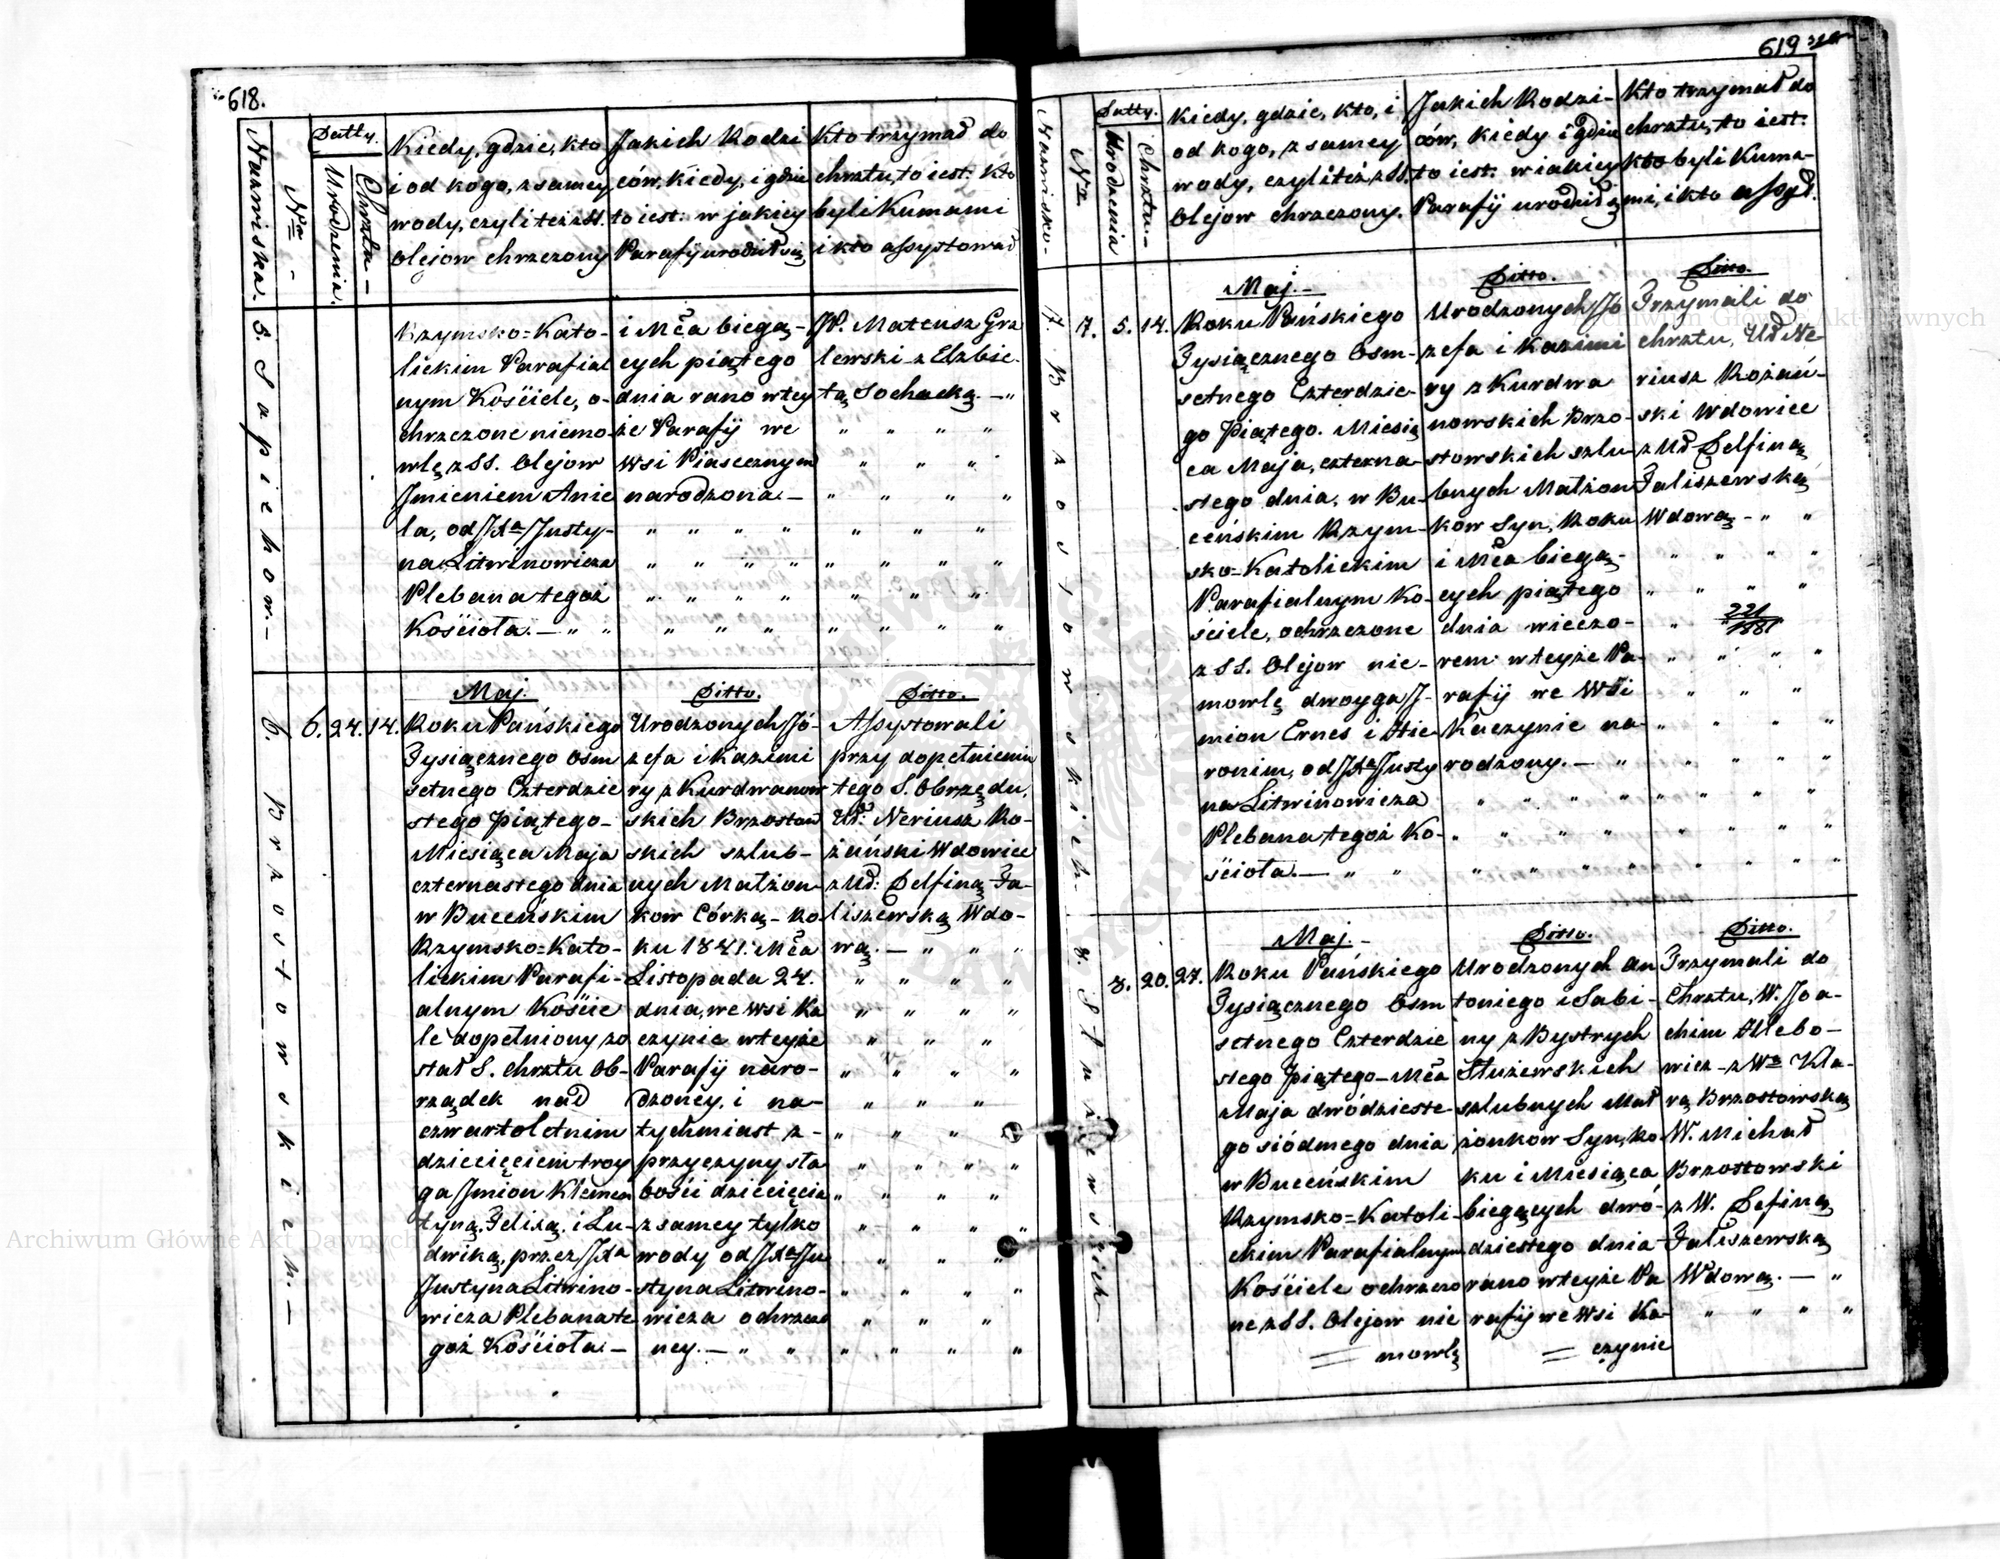 618.
Nazwiska.
Nra
Datty.
Urodzenia.
Chrztu
Kiedy, gdzie, kto
i od kogo, z samey
wody, czyli też z SS.
Olejow chrzczony
Jakich Rodzi
ców, kiedy, i gdzie
to iest: w jakiey
Parafij urodził się
Kto trzymał do
chrztu, to iest: kto
byli Kumami
i kto assystował
5. Sapiehow.
Rzymsko=Kato-
lickim Parafial
nym Kościele, o-
chrzczone niemo-
wlę z SS. Olejow
Jmieniem Anie
la, od JXa Justy-
na Litwinowicza
Plebana tegoż
Kościoła.
i Mca biegą-
cych piątego
dnia rano w tey
że Parafij we
wsi Piasecznym
narodzona.
JP. Mateusz Grz
lewski z Elzbie-
tą Sochacką.
6. Brzostowskich.
6. 24. 14.
Maj.
Roku Pańskiego
Tysiącznego osm
setnego Czterdzie
stego piątego
Miesiąca Maja
czternastego dnia
w Buceńskim
Rzymsko=Kato-
lickim Parafi-
alnym Koście
le dopełniony zo
stał S. chrztu Ob-
rządek nad
czwartoletnim
dziecięciem troy
ga Jmion Klemen
tyną, Felixą, i Lu-
dwiką, przez JXa
Justyna Litwino-
wicza Plebana te
goż Kościoła.
Ditto.
Urodzonych Jó-
zefa i Kazimi
ry z Kurdwanow
skich Brzostow
skich szlub-
nych Małżon-
kow Córką - Ro-
ku 1841. Mca
Listopada 24.
dnia, we wsi Ka
czynie w teyże
Parafij naro-
dzoney, i na-
tychmiast z-
przyczyny sła
bości dziecięcia
z samey tylko
wody od JXa Ju
styna Litwino-
wicza ochrzczo
ney.
Ditto.
Assystowali
przy dopełnieniu
tego S. Obrzędu,
Ur: Neriusz Ro-
żański Wdowiec
z Ur: Delfiną Fa-
liszewską Wdo-
wą.
619
Nazwisko.
Nra
Datty.
Urodzenia
Chrztu.
Kiedy, gdzie, kto, i
od kogo, z samey
wody, czyli też z SS.
Olejow chrzczony.
Jakich Rodzi-
ców, kiedy i gdzie
to iest: w iakiey
Parafij urodził się
Kto trzymał do
chrztu, to iest:
kto byli Kuma-
mi, i kto assyst.
7. Brzostowskich.
7. 5. 14.
Maj.
Roku Pańskiego
Tysiącznego Osm-
setnego Czterdzie-
go Piątego. Miesią
ca Maja, czterna-
stego dnia, w Bu-
ceńskim Rzym-
sko=Katolickim
Parafialnym Ko-
ściele, ochrzczone
z SS. Olejow nie-
mowlę dwoyga J-
mion Ernes i Hie-
ronim, od JXa Justy
na Litwinowicza
Plebana tegoż Ko-
ścioła.
Ditto.
Urodzonych Jó
zefa i Kazimi
ry z Kurdwa
nowskich Brzo-
stowskich szlu-
bnych Małżon
kow Syn, Roku
i Mca biegą-
cych piątego
dnia wieczo-
rem w teyże Pa-
rafij we Wsi
Kaczynie na-
rodzony.
Ditto.
Trzymali do
chrztu, Ur Ne
riusz Rożań-
ski Wdowiec
z Ur Delfiną
Faliszewską
Wdową
221/1881
8. Służewskich
8. 20. 27.
Maj.
Roku Pańskiego
Tysiącznego Osm
setnego Czterdzie
stego piątego Mca
Maja dwódzieste
go siódmego dnia
w Buceńskim
Rzymsko=Katoli-
ckim Parafialnym
Kościele ochrzczo
ne z SS. Olejow nie
mowlę
Ditto.
Urodzonych An
toniego i Sabi-
ny z Bystrych
Służewskich
szlubnych Mał
żonkow Syn, Ro
ku i Miesiąca
biegących dwó-
dziestego dnia
rano w teyże Pa
rafij we wsi Ka-
czynie
Ditto.
Trzymali do
Chrztu, W. Joa-
chim Hlebo-
wicz z Wą Kla-
rą Brzostowską
W. Michał
Brzostowski
z W. Definą
Faliszewską
Wdową.
Archiwum Główne Akt Dawnych
Archiwum Główne Akt Dawnych